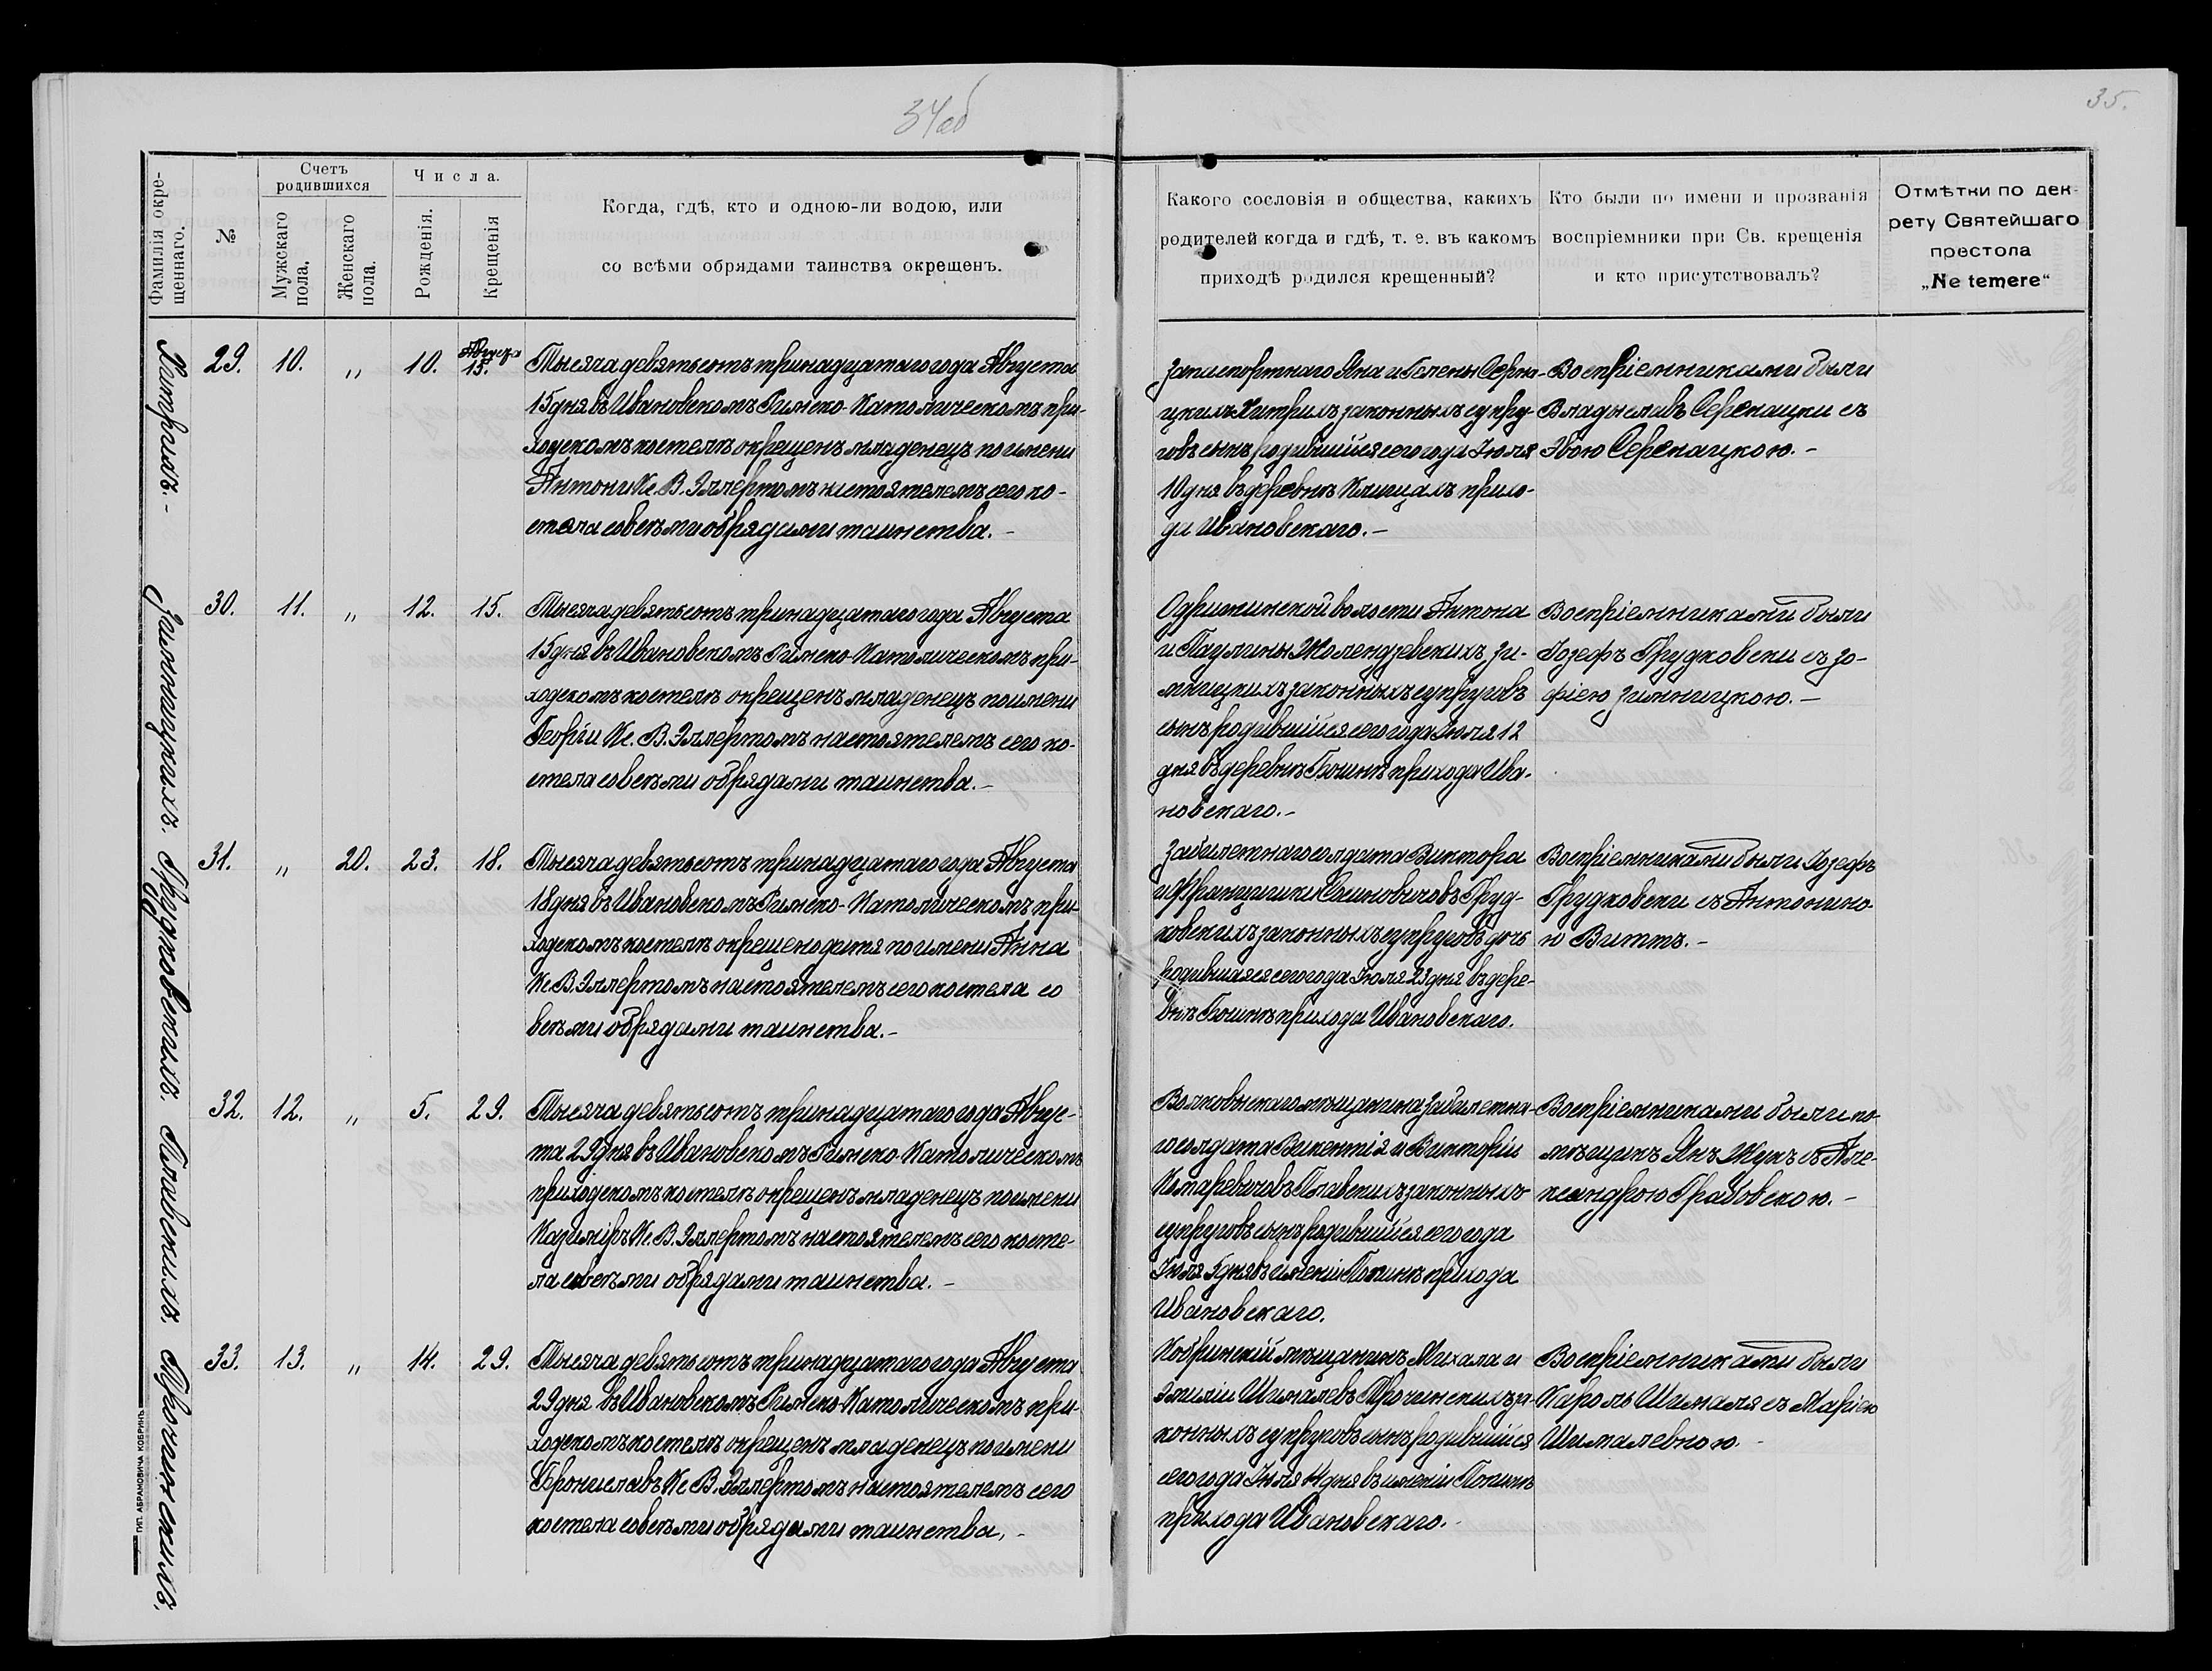 34об
35.
Фамилія окре-
щеннаго.
№
Счетъ
родившихся
Мужскаго
пола.
Женскаго
пола.
Числа.
Рожденія.
Крещенія
Когда, гдѣ, кто и одною-ли водою, или
со всѣми обрядами таинства окрещенъ.
Какого сословія и общества, какихъ
родителей когда и гдѣ, т. е. въ какомъ
приходѣ родился крещенный?
Кто были по имени и прозванія
воспріемники при Св. крещенія
и кто присутствовалъ?
Отмѣтки по дек-
рету Святейшаго
престола
„Ne temere“
Хитрыхъ.-
29. 10. „ 10. Августа 15.
Тысяча девятьсотъ тринадцатаго года Августа
15 дня въ Ивановскомъ Римско-Католическомъ при-
ходскомъ костелѣ окрещенъ младенецъ по имени
Антони Кс. В. Эллертомъ настоятелемъ сего ко-
стела со всѣми обрядами таинства.-
Запаспортнаго Яна и Гелены
законныхъ супру-
говъ сынъ родившійся сего года Іюля
10 дня въ деревнѣ прихо-
да Ивановскаго.-
Воспріемниками были
Владиславъ съ
Эвою
Зимницкихъ.
30. 11. „ 12. 15.
Тысяча девятьсотъ тринадцатаго года Августа
15 дня въ Ивановскомъ Римско-Католическомъ при-
ходскомъ костелѣ окрещенъ младенецъ по имени
Георгіи Кс. В. Эллертомъ настоятелемъ сего ко-
стела со всѣми обрядами таинства.-
Одрижинской волости Антона
и Паулины Жолендзевскихъ Зи-
мницкихъ законныхъ супруговъ
сынъ родившійся сего года Іюля 12
дня въ деревнѣ прихода Ива-
новскаго.-
Воспріемниками были
Іозефъ Грудковски съ Зо-
фіею Зимницкою.-
Грудковскихъ.
31. „ 20. 23. 18.
Тысяча девятьсотъ тринадцатаго года Августа
18 дня въ Ивановскомъ Римско-Католическомъ при-
ходскомъ костелѣ окрещено дитя по имени Анна
Кс. В. Эллертомъ настоятелемъ сего костела со
всѣми обрядами таинства.-
Забилетнаго солдата Виктора
и Францишки Груд-
ковскихъ законныхъ супруговъ дочь
родившаяся сего года Іюля 23 дня въ дере-
внѣ прихода Ивановскаго.
Воспріемниками были Іозефъ
Грудковски съ Антонино-
ю Виттъ.-
32. 12. „ 5. 29.
Тысяча девятьсотъ тринадцатаго года Авгус-
та 29 дня въ Ивановскомъ Римско-Католическомъ
приходскомъ костелѣ окрещенъ младенецъ по имени
Казиміръ Кс. В. Эллертомъ настоятелемъ сего косте-
ла со всѣми обрядами таинства.-
Волковыскаго мѣщанина забилетна-
го солдата Викентія и Викторіи
законныхъ
супруговъ сынъ родившійся сего года
Іюля 5 дня въ имѣніи прихода
Ивановскаго.
Воспріемниками были по-
мѣщикъ Янъ Жукъ съ Але-
ксандрою Грабовскою.-
33. 13. „ 14. 29.
Тысяча девятьсотъ тринадцатаго года Августа
29 дня въ Ивановскомъ Римско-Католическомъ при-
ходскомъ костелѣ окрещенъ младенецъ по имени
Брониславъ Кс. В. Эллертомъ настоятелемъ сего
костела со всѣми обрядами таинства.-
Кобринскій мѣщанинъ Михала и
Эмиліи за-
конныхъ супруговъ сынъ родившійся
сего года Іюля 14 дня въ имѣніи
прихода Ивановскаго.
Воспріемниками были
Кароль Шималя съ Маріею
Шималевною.
ТИП. АБРАМОВИЧА КОБРИНЪ